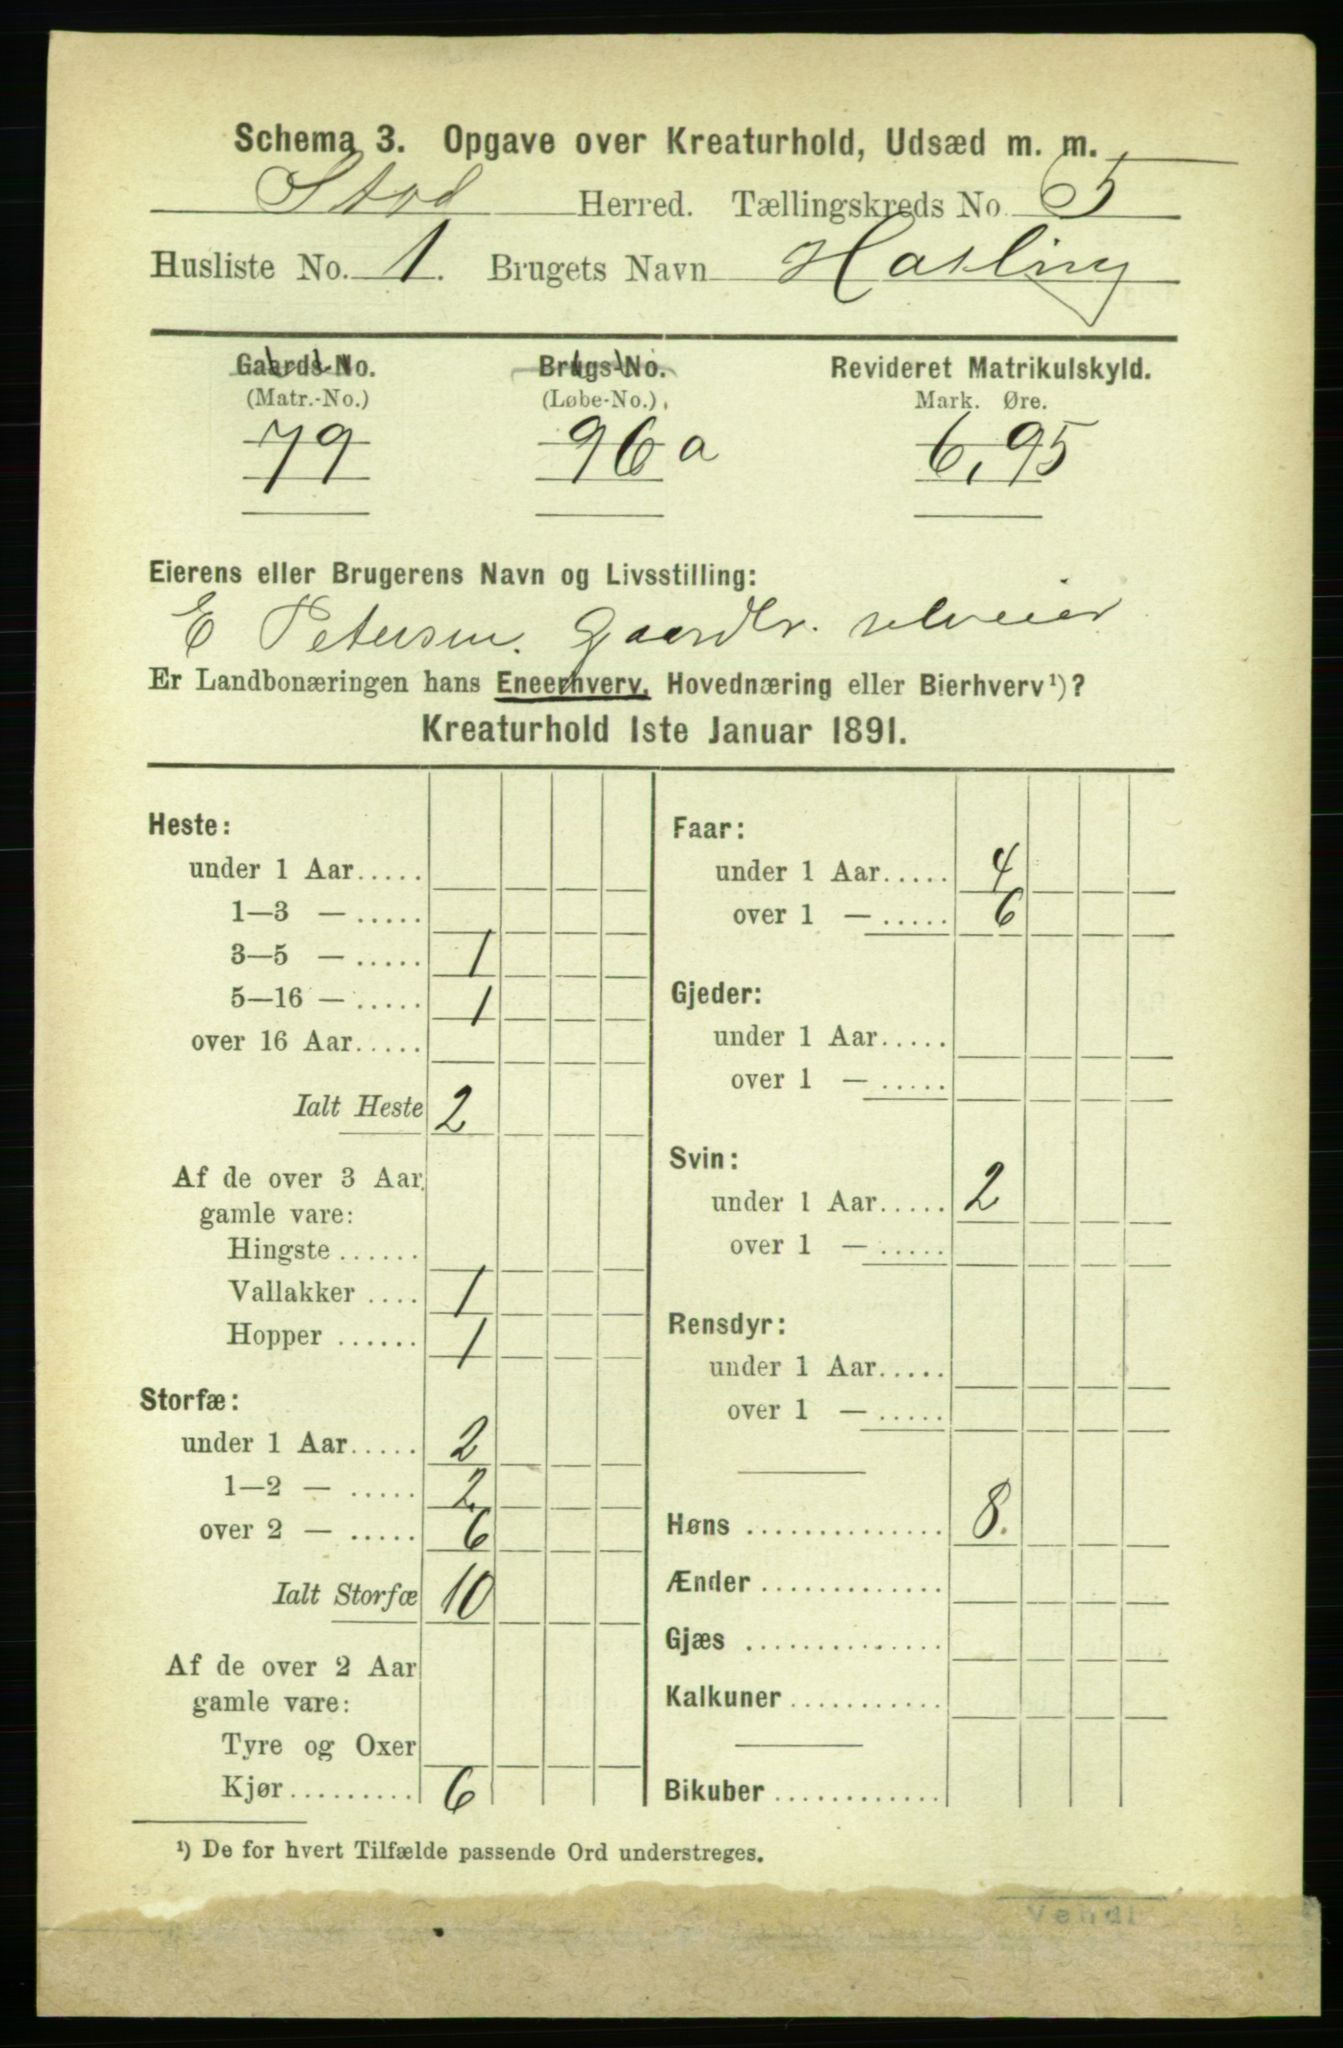 Schema 3. Opgave over Kreaturhold, Udsæd m. m.
Stod Herred. Tællingskreds No. 5
Husliste No. 1. Brugets Navn Hasling
Gaards-No. Brugs-No. Revideret Matrikulskyld.
(Matr.-No.) (Løbe-No.) Mark. Øre.
79 96 a 6,95
Eierens eller Brugerens Navn og Livsstilling:
E Petersen. Gaardbr. selveier
Er Landbonæringen hans Eneerhverv, Hovednæring eller Bierhverv¹)?
Kreaturhold 1ste Januar 1891.
Heste:
under 1 Aar.....
1—3 — .....
3—5 — ..... 1
5—16 — ..... 1
over 16 Aar.....
Ialt Heste 2
Af de over 3 Aar
gamle vare:
Hingste ......
Vallakker .... 1
Hopper ...... 1
Storfæ:
under 1 Aar..... 2
1—2 — ..... 2
over 2 — ..... 6
Ialt Storfæ 10
Af de over 2 Aar
gamle vare:
Tyre og Oxer
Kjør......... 6
Faar:
under 1 Aar..... 4
over 1 — ..... 6
Gjeder:
under 1 Aar.....
over 1 — .....
Svin:
under 1 Aar..... 2
over 1 — .....
Rensdyr:
under 1 Aar.....
over 1 — .....
Høns .............. 8.
Ænder .............
Gjæs ..............
Kalkuner ...........
Bikuber ............
¹) De for hvert Tilfælde passende Ord understreges.
Vendi